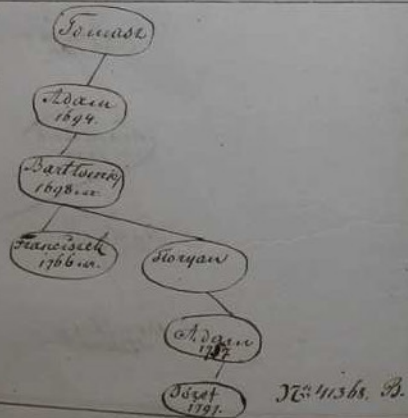 Tomasz
Adam
1694.
Bartłomiej
1698 ur.
Franciszek
1766 ur.
Floryan
Adam
Józef
1791.
41368. B.